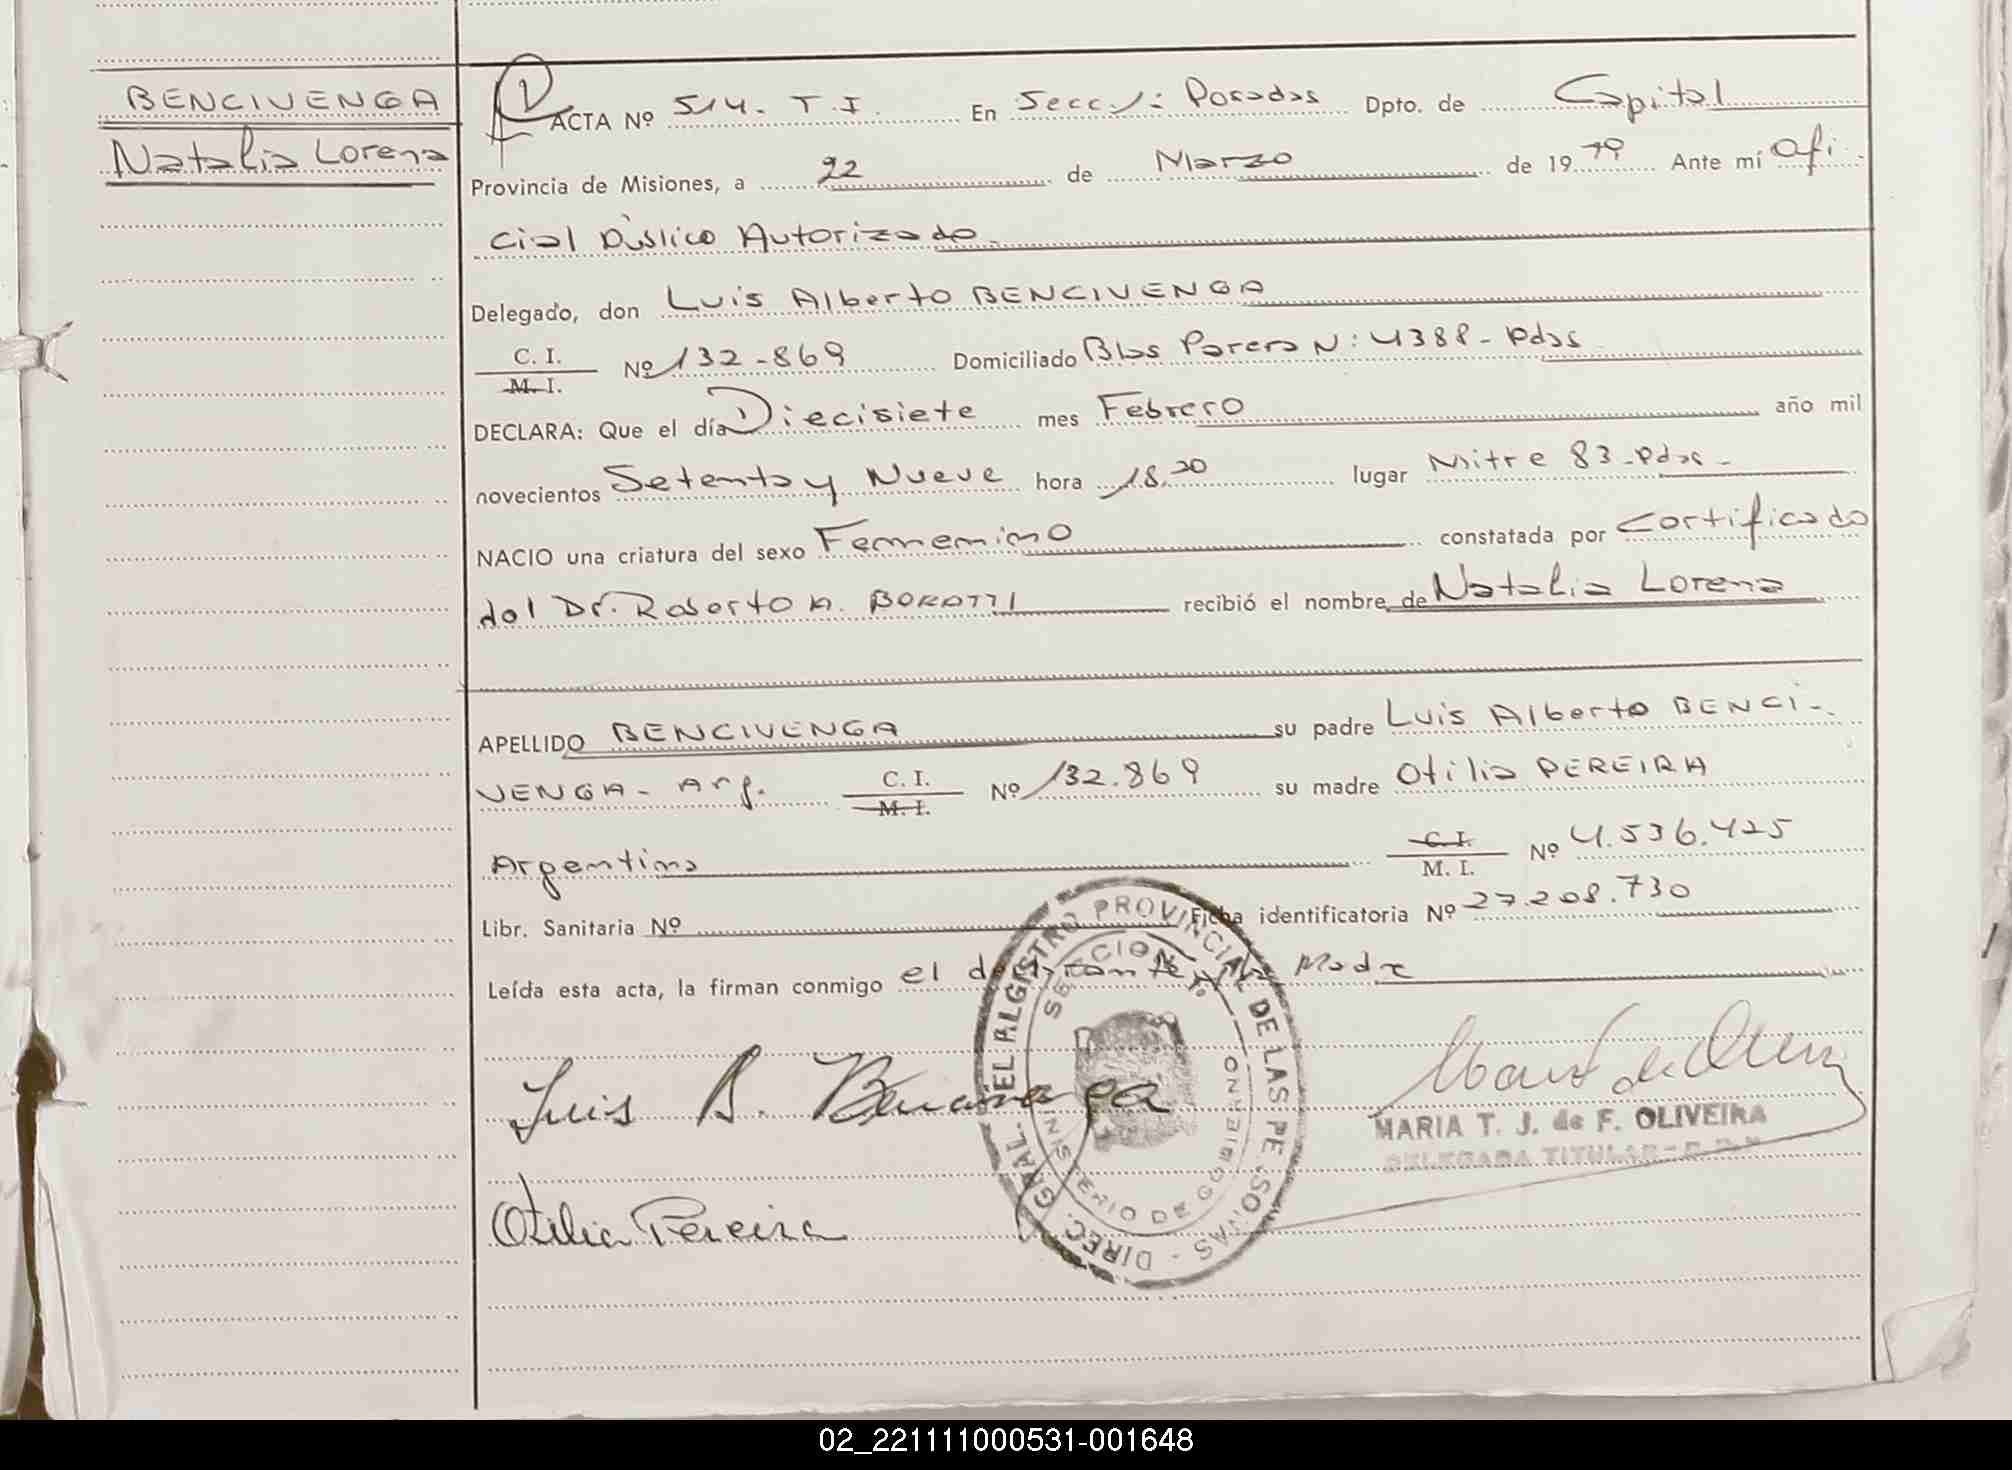 BENCIVENGA
Natalia Lorena
ACTA Nº 514. T.I. En Secc. 1: Posadas Dpto. de Capital
Provincia de Misiones, a 22 de Marzo de 1979 Ante mí Ofi
cial Público Autorizado.
Delegado, don Luis Alberto BENCIVENGA
C. I.
M. I. Nº 132-869 Domiciliado Blas Parera N: 4388- Pdas
DECLARA: Que el día Diecisiete mes Febrero año mil
novecientos Setenta y Nueve hora 18.20 lugar Mitre 83-Pdas-
NACIO una criatura del sexo Femenino constatada por Certificado
del Dr. Roberto A. recibió el nombre de Natalia Lorena
APELLIDO BENCIVENGA su padre Luis Alberto BENCI-
VENGA- Arg. C. I.
M. I. Nº 132.869 su madre Otilia PEREIRA
Argentina C. I.
M. I. Nº 4.536.425
Libr. Sanitaria Nº Ficha identificatoria Nº 27.208.730
Leída esta acta, la firman conmigo el declarante y la Madre
Luis A. Bencivenga
Otilia Pereira
DIREC. GRAL. DEL REGISTRO PROVINCIAL DE LAS PERSONAS -
SECCION 1º
MINISTERIO DE GOBIERNO
MARIA T. J. de F. OLIVEIRA
DELEGADA TITULAR
02_221111000531-001648